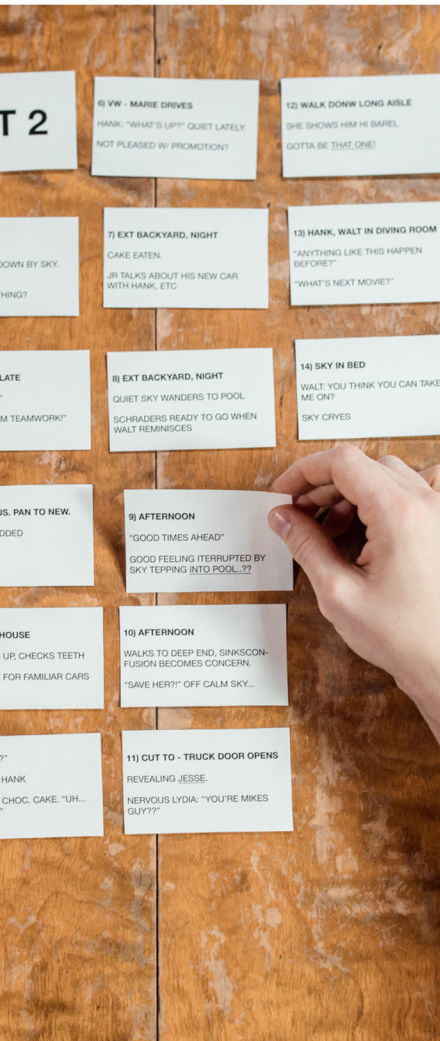 T 2
DOWN BY SKY.
THING?
LATE
"
M TEAMWORK!"
US. PAN TO NEW.
DDED
HOUSE
UP, CHECKS TEETH
FOR FAMILIAR CARS
?"
HANK
CHOC. CAKE. "UH...
"
6) VW - MARIE DRIVES
HANK: "WHAT'S UP?" QUIET LATELY.
NOT PLEASED W/ PROMOTION?
7) EXT BACKYARD, NIGHT
CAKE EATEN.
JR TALKS ABOUT HIS NEW CAR
WITH HANK, ETC
8) EXT BACKYARD, NIGHT
QUIET SKY WANDERS TO POOL
SCHRADERS READY TO GO WHEN
WALT REMINISCES
9) AFTERNOON
"GOOD TIMES AHEAD"
GOOD FEELING ITERRUPTED BY
SKY TEPPING INTO POOL..??
10) AFTERNOON
WALKS TO DEEP END, SINKSCON-
FUSION BECOMES CONCERN.
"SAVE HER?!" OFF CALM SKY...
11) CUT TO - TRUCK DOOR OPENS
REVEALING JESSE.
NERVOUS LYDIA: "YOU'RE MIKES
GUY??"
12) WALK DONW LONG AISLE
SHE SHOWS HIM HI BAREL
GOTTA BE THAT ONE!
13) HANK, WALT IN DIVING ROOM
"ANYTHING LIKE THIS HAPPEN
BEFORE?"
"WHAT'S NEXT MOVIE?"
14) SKY IN BED
WALT: YOU THINK YOU CAN TAKE
ME ON?
SKY CRYES